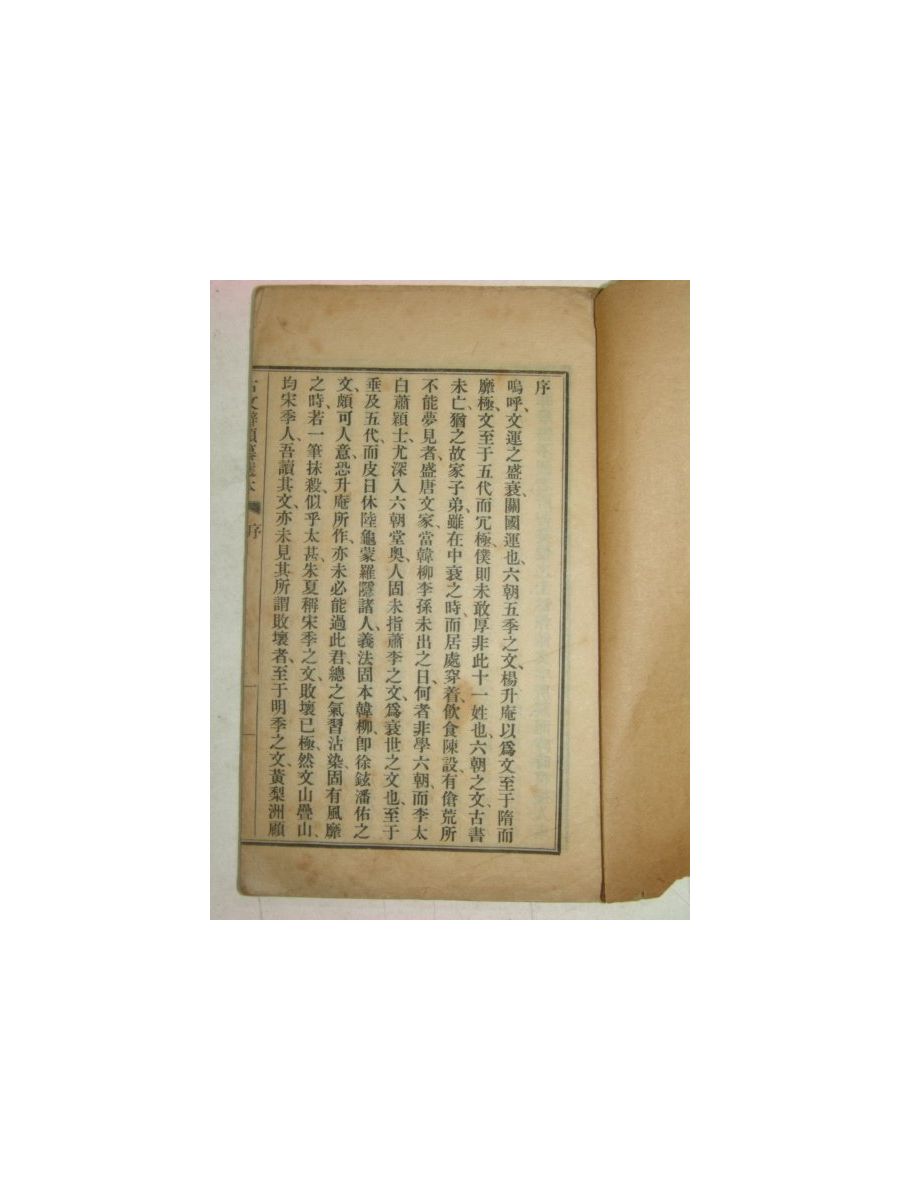 序
嗚呼、文運之盛衰、關國運也、六朝五季之文、楊升庵以爲文至于隋而
靡極、文至于五代而冗極、僕則未敢厚非此十一姓也、六朝之文、古書
未亡、猶之故家子弟、雖在中衰之時、而居處穿着、飲食陳設、有傖荒所
不能夢見者、盛唐文家、當韓柳李孫未出之日、何者非學六朝、而李太
白蕭穎士尤深入六朝堂奧、人固未指蕭李之文、爲衰世之文也、至于
垂及五代、而皮日休陸龜蒙羅隱諸人、義法固本韓柳、卽徐鉉潘佑之
文、頗可人意、恐升庵所作、亦未必能過此君、總之氣習沾染、固有風靡
之時、若一筆抹殺、似乎太甚、朱夏稱宋季之文、敗壞已極、然文山疊山、
均宋季人、吾讀其文、亦未見其所謂敗壞者、至于明季之文、黃梨洲顧
古文辭類纂選本 序 一